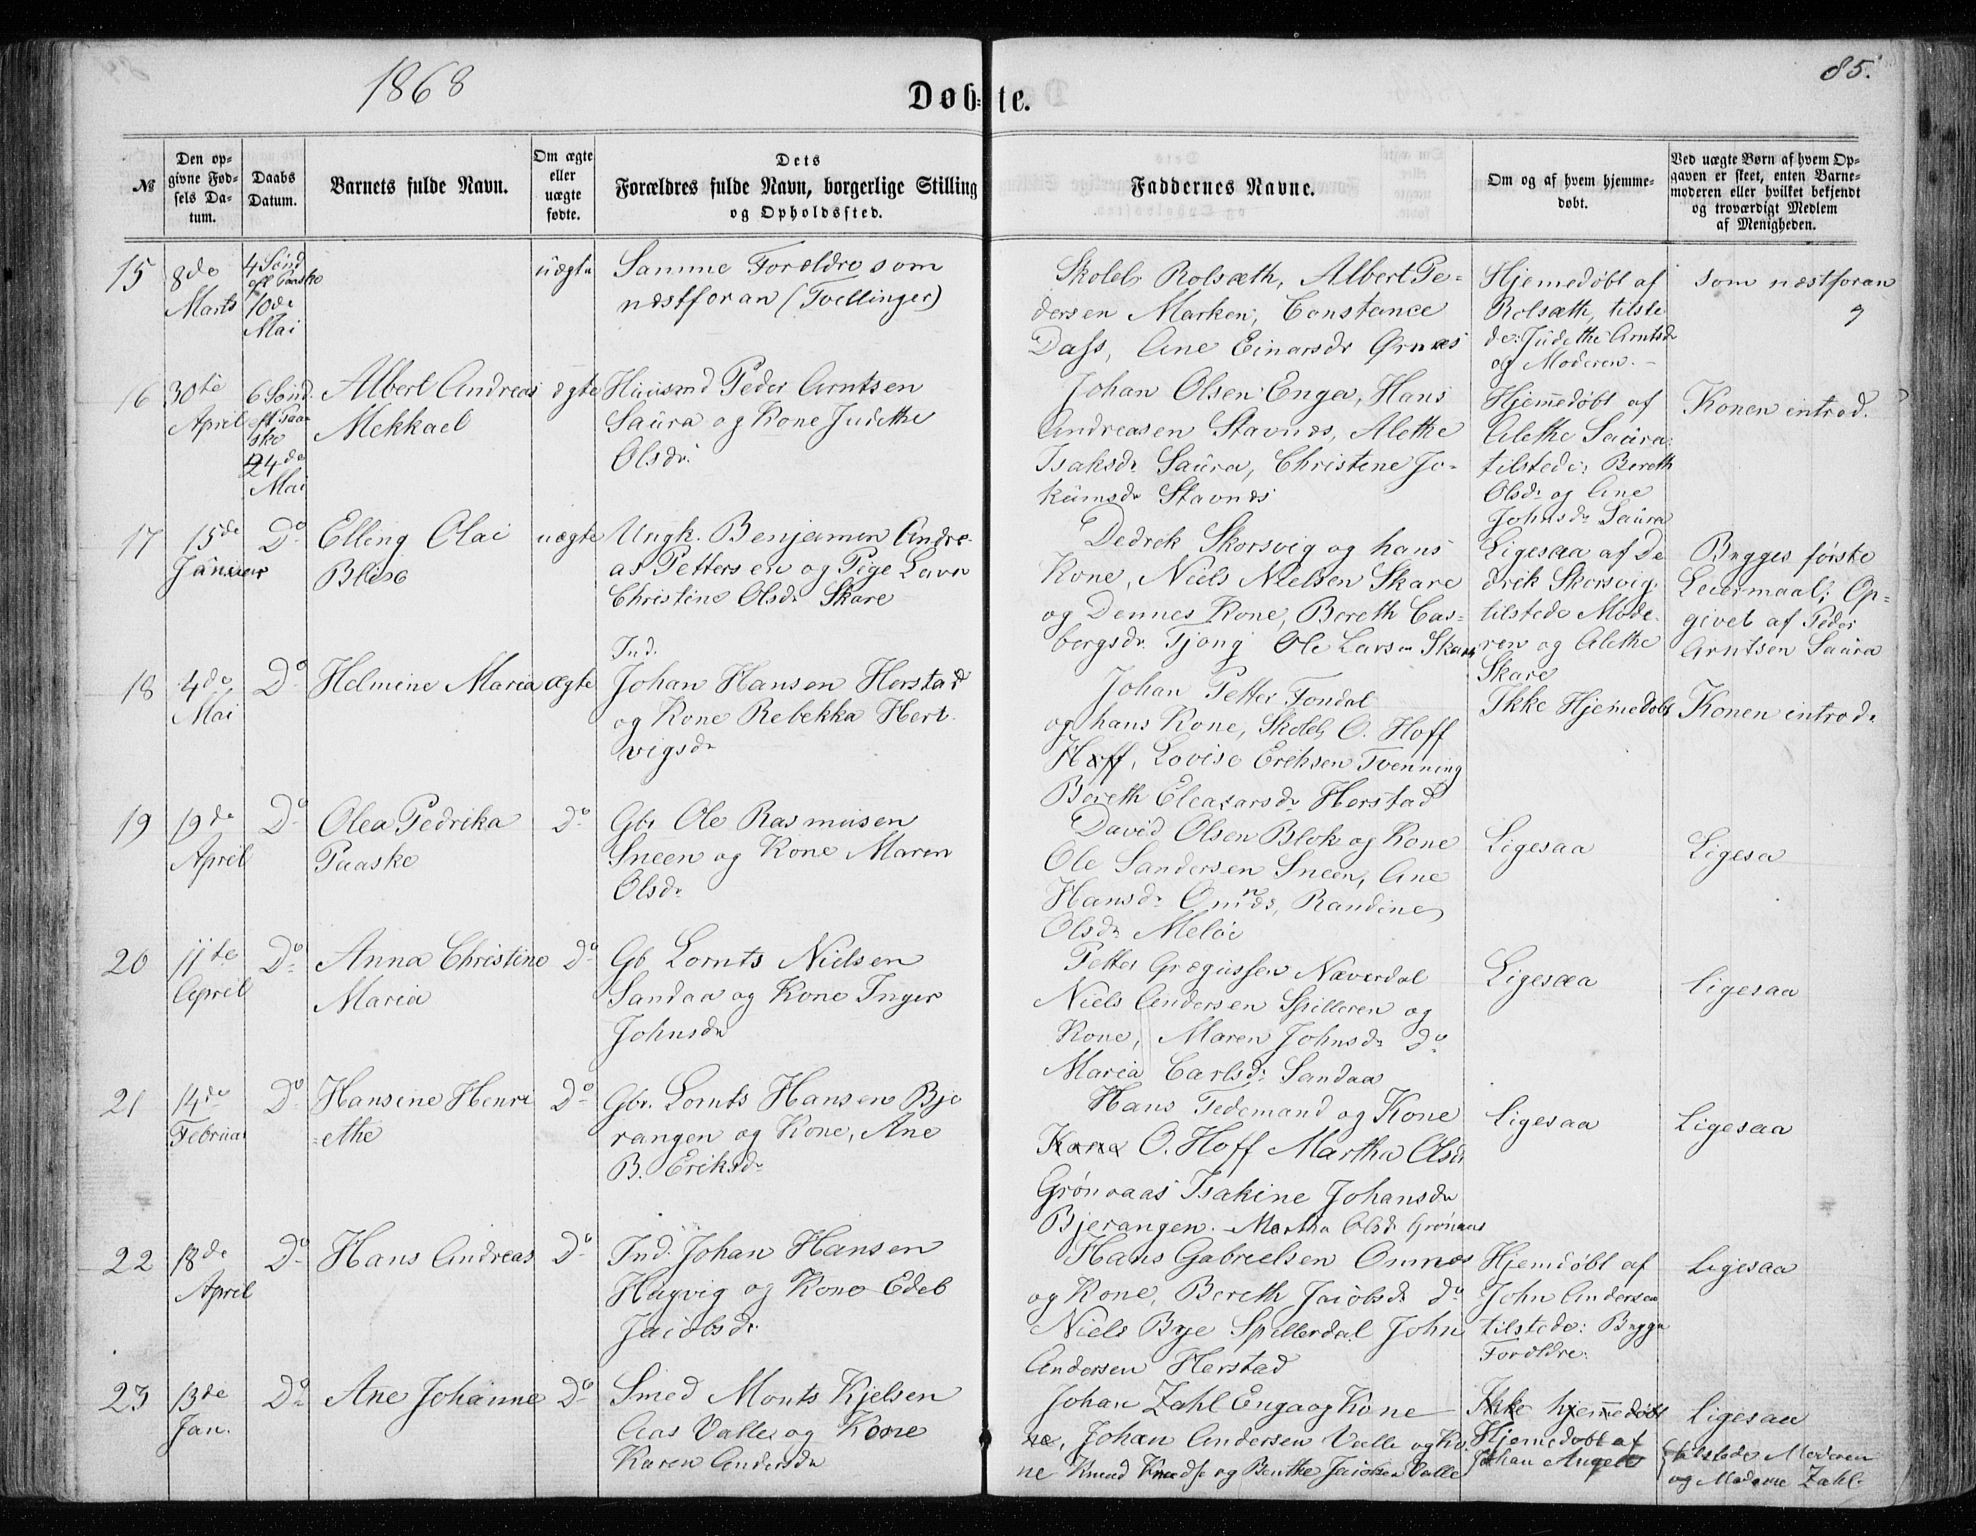 1868
Døb-te.
85.
№
Den op-
givne Fød-
sels Da-
tum.
Daabs
Datum.
Barnets fulde Navn.
Om ægte
eller
uægte
fødte.
Dets
Forældres fulde Navn, borgerlige Stilling
og Opholdssted.
Faddernes Navne.
Om og af hvem hjemme-
døbt.
Ved uægte Børn af hvem Op-
gaven er skeet, enten Barne-
moderen eller hvilket bekjendt
og troværdigt Medlem
af Menigheden.
15
8de
Marts
4 Sønd
eft Paaske
10de
Mai
uægte
Samme Forældre som
næstforan (Tvellinger)
Skoleb. Rolsæth, Albert Pe-
dersen Marken, Constance
Dass, Ane Einarsdr Ørnæs
Hjemedøbt af
Rolsæth, tilste
de: Judethe Arntsdr
og Moderen.
som næstforan
16
30te
April
6 Sønd.
ft Paa-
ske
24de
Mai
Albert Andreas
Mekkael
ægte
Huusmd Peder Arntsen
Saura og Kone Judethe
Olsdr
Johan Olsen Enga, Hans
Andreasen Stavnæs, Alethe
Isaksdr Saura, Christine Jo-
kumsdr Stavnæs
Hjemedøbt af
Alethe Saura
tilstede: Bereth
Olsdr og Ane
Johnsdr Saura
Konen introd.
17
15de
Januar
Do
Elling Olai
Bline
uægte
Ungk. Benjamin Andre-
as Pettersen og Pige Lavn
Christine Olsdr Skare
Dedrek Skorsvig og hans
Kone, Niels Nielsen Skare
og Dennes Kone, Bereth Cas-
bergsdr. Tjong Ole Larsen Skare
Ligesaa af De
drik Skorsvig,
tilstede Mode-
ren og Alethe
Skare
Begges første
Leiermaal; Op-
givet af Peder
Arntsen Saura
18
4de
Mai
Do
Helmine Maria
ægte
Ind.
Johan Hansen Herstad
og Kone Rebekka Hert-
vigsdr
Johan Petter Fondal
og hans Kone, Skoleb O. Hoff
Hoff, Lovise Eriksen Tvenning
Bereth Eleasarsdr Herstad
Ikke Hjemedøbt
Konen introd.
19
19de
April
Do
Olea Pedrika
Paaske
Do
Gbr Ole Rasmusen
Sneen og Kone Maren
Olsdr
David Olsen Blok og Kone
Ole Sandersen Sneen, Ane
Hansdr Omnæs, Randine
Olsdr Meløi
Ligesaa
Ligesa
20
11te
April
Do
Anna Christine
Maria
Do
Gb Lornts Nielsen
Sandaa og Kone Inger
Johnsdr
Petter Gregussen Næverdal
Niels Andersen Spilleren og
Kone, Maren Johnsdr Do
Maria Carlsdr Sandaa
Ligesaa
Ligesaa
21
14de
Februar
Do
Hansine Henri
=ethe
Do
Gbr. Lornts Hansen Bje
rangen og Kone, Ane
B. Eriksdr
Hans Tedemand og Kone
Kone O. Hoff Martha Olsdr
Grønaas Isakine Johansdr
Bjerangen. Martha Olsdr Grønaas
Ligesaa
Ligesaa
22
18de
April
Do
Hans Andreas
Do
Ind. Johan Hansen
Høgvig og Kone Edeb
Jacobsdr
Hans Gabrielsen Omnæs
og Kone, Bereth Jacobsdr do
Niels Bye Spillerdal John
Andersen Herstad
Hjemdøbt af
John Andersen
tilstede: Begge
Forældre.
Ligesaa
23
13de
Jan.
Do
Ane Johanne
Do
Smed Monts Kjelsen
Aas Valle og Kone
Karen Andersdr
Johan Zahl Enga og Kone
ne, Johan Andersen Valle og Ko
ne Knud Knudse og Benthe Jacobsen Valle
Ikke hjemedøbt
Hjemedøbt af
Johan Angell
Ligesaa
tilstede Moderen
og Madame Zahl.